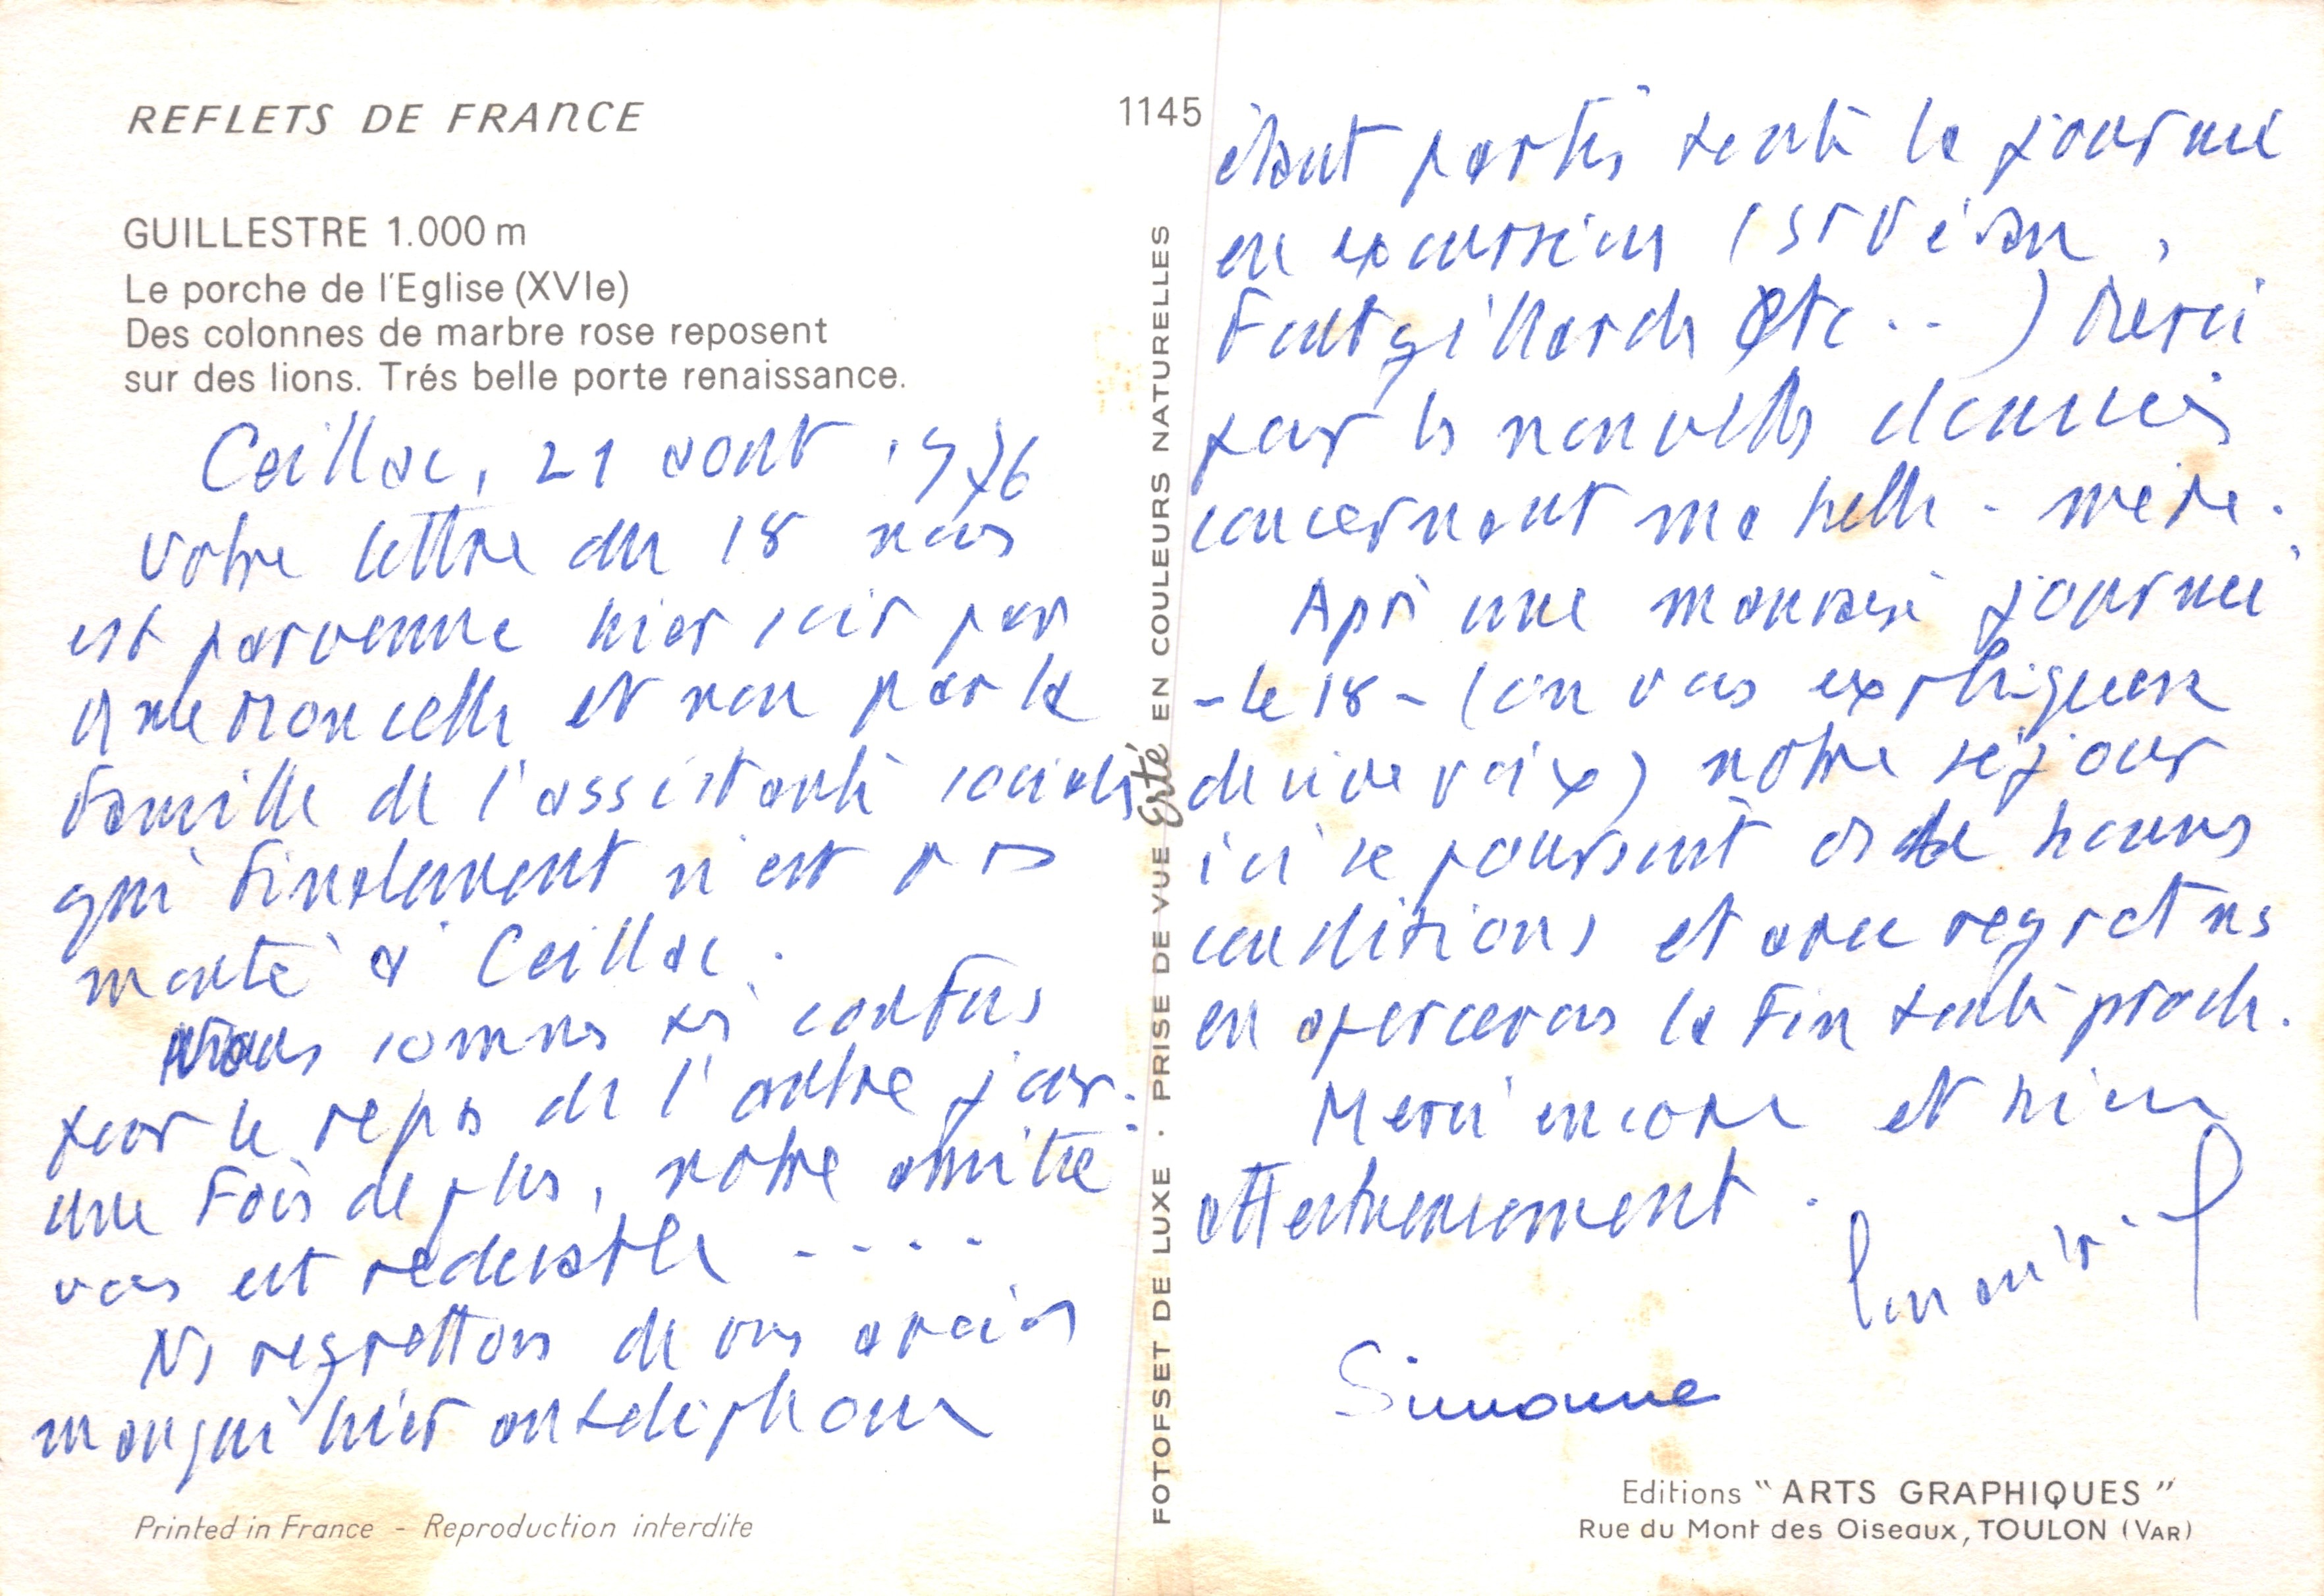 REFLETS DE FRANCE
GUILLESTRE 1.000 m
Le porche de l'Eglise (XVIe)
Des colonnes de marbre rose reposent
sur des lions. Trés belle porte renaissance.
Ceillac, 21 aout 1976
Votre lettre du 18 nous
est parvenue hier soir par
et non par la
famille de l'assistante sociale
qui finalement n'est pas
monté à Ceillac.
Nous sommes très confus
pour le repas de l'autre jour.
une fois de plus, notre amitié
vous est redevable ....
Ns regrettons de vous avoir
manqué hier au téléphone
Printed in France - Reproduction interdite
1145
FOTOFSET DE LUXE . PRISE DE VUE Erté EN COULEURS NATURELLES
étant partis toute la journée
en excursion (St Véran,
Fontgillarde etc..) Merci
pour les nouvelles données
concernant ma belle-mère.
Après une mauvaise journée
- le 18 - (on vous expliquera
de vive voix) notre séjour
ici se poursuit ds de bonnes
conditions et avec regret ns
en apercevons la fin toute proche.
Merci encore et bien
affectueusement.
Simonne
Editions "ARTS GRAPHIQUES"
Rue du Mont des Oiseaux, TOULON (VAR)